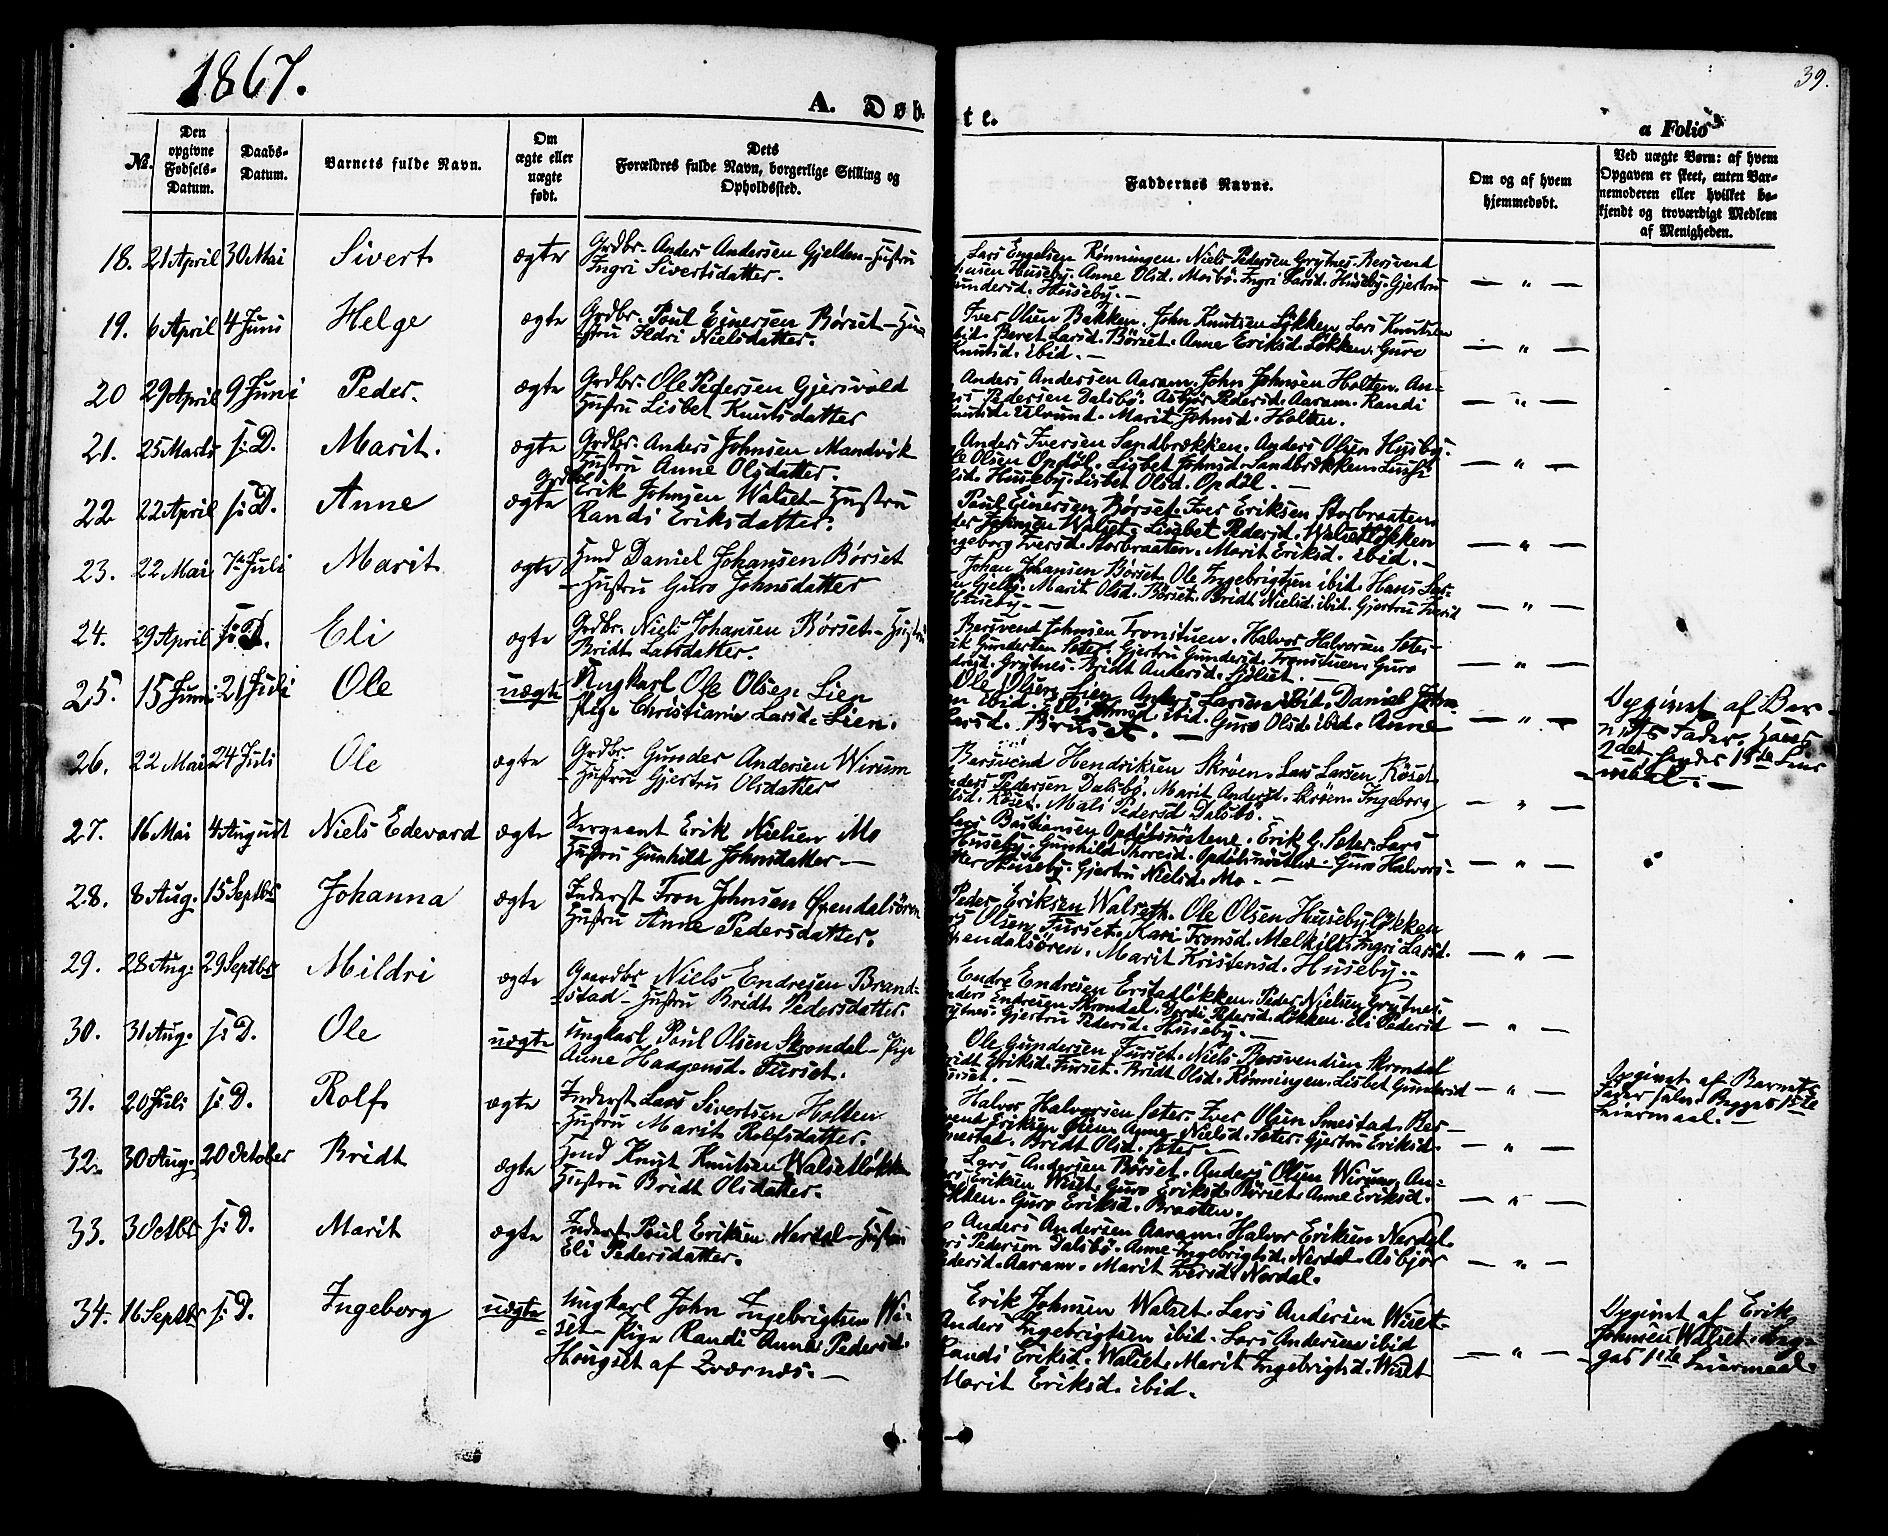 1867.
39.
A. Døb-
te.
a Folio
№.
Den opgivne Fødsels-Datum.
Daabs-Datum.
Barnets fulde Navn.
Om ægte eller uægte født.
Dets Forældres fulde Navn, borgerlige Stilling og Opholdssted.
Faddernes Navne.
Om og af hvem hjemmedøbt.
Ved uægte Børn: af hvem Opgaven er skeet, enten Barnemoderen eller hvilket bekjendt og troværdigt Medlem af Menigheden.
18. 21 April 30 Mai Sivert ægte Grdbr. Anders Andersen Gjelden - Hustru
Ingri Sivertsdatter.
Lars Engelsen Rønningen. Niels Pedersen Grytnes. Bersvend
Huseby. Anne Olsd. Mosbø. Ingri Larsd. Huseby. Gjertru
Gundersd. Huseby. —
— " —
19. 6 April 4 Juni Helge ægte Grdbr. Poul Einersen Børset - Hu-
stru Ildri Nielsdatter.
Iver Olsen Bakken. John Knutsen Løkken. Lars Knutsen
ibid. Beret Larsd. Børset. Anne Eriksd. Løkken. Guro
Knutsd. ibid. —
— " —
20 29 April 9 Juni Peder. ægte Grdbr. Ole Pedersen Gjersvold
Hustru Lisbet Knutsdatter
Anders Andersen Aaram. John Johnsen Holten. An-
Pedersen Dalsbø. Asbjør Pedersd. Aaram. Randi
Knutsd. Ulvund. Marit Johnsd. Holten.
— " —
21. 25 Marts s: D. Marit. ægte Grdbr. Anders Johnsen Mandvik
Hustru Anne Olsdatter.
Anders Iversen Sandbrækken. Anders Olsen Husby.
Ole Olsen Opdøl. Lisbet Johnsd. Sandbrækken.
Huseby. Lisbet Olsd. Opdøl. —
— " —
22 22 April s: D. Anne ægte Grdbr. Erik Johnsen Walset - Hustru
Randi Eriksdatter.
Poul Einersen Børset. Iver Eriksen Storbraaten.
Johnsen Walset. Lisbet Pedersd. Walsetløkken
Ingeborg Iversd. Storbraaten. Marit Eriksd. ibid. —
— " —
23. 22 Mai 7de Juli Marit ægte Hmd Daniel Johansen Børset
- Hustru Guro Johnsdatter
Johan Johansen Børset. Ole Ingebrigtsen ibid. Hans Lar-
Marit Olsd. Børset. Bridt Nielsd. ibid. Gjertru Iversd
Huseby. —
— " —
24. 29 April s: D. Eli ægte Grdbr. Niels Johansen Børset - Hustru
Bridt Larsdatter.
Bersvend Johnsen Tronstuen. Halvor Halvorsen Sæter.
Gundersen Sæter. Gjertru Gundersd. Tronstuen. Guro
Grytnes. Bridt Andersd.
— " —
25. 15 Juni 21 Juli Ole uægte Ungkarl Ole Olsen Lien
Pige Christianie Larsd. Lien.
Ole Olsen Lien. Anders Larsen ibid. Daniel John-
ibid. Eli Johnsd ibid. Guro Olsd. ibid. Anne
Larsd. Bruset. —
— " —
Opgivet af Bar-
nets Fader. Hans
2det hendes 1ste Leier-
maal. —
26. 22 Mai 24 Juli Ole ægte Grdbr. Gunder Andersen Wirum
- Hustru Gjertru Olsdatter
Bersvend Hendriksen Skrøen. Lars Larsen Røset
Anders Pedersen Dalsbø. Marit Andersd. Skrøen. Ingeborg
Røset. Mali Pedersd Dalsbø.
— " —
27. 16 Mai 4 August Niels Edevard ægte Sergeant Erik Nielsen Mo
Hustru Gunhild Johnsdatter —
Lars Bastiansen Opdølsnøstene. Erik G. Sæter. Lars
Huseby. Gunhild Thoresd. Opdølsnøstene. Guro Halvors-
Huseby. Gjertru Nielsd. Mo. —
— " —
28. 8 Aug. 15 Septbr Johanna ægte Inderst Tron Johnsen Øxendalsøren
Hustru Anne Pedersdatter.
Peder Eriksen Walseth. Ole Olsen Husebyløkken
Olsen Furset. Kari Tronsd. Melkild. Ingri Larsd.
Øxendalsøren. Marit Kristensd. Huseby. —
— " —
29. 28 Aug. 29 Septbr Mildri ægte Gaardbr Niels Endresen Brand-
stad - Hustru Bridt Pedersdatter.
Endre Endresen Erstadløkken. Peder Nielsen Grytnes.
Anders Endresen Skrondal. Pedersd. Løkken. Eli Pedersd
Grytnes. Gjertru Pedersd. Huseby. —
— " —
30. 31 Aug. s: D. Ole uægte Ungkarl Poul Olsen Skrondal - Pige
Anne Haagensd. Furset.
Ole Gundersen Furset. Niels Bersvendsen Skrondal
Bridt Eriksd. Furset. Bridt Olsd. Rønningen. Lisbet Gundersd
Furset. —
— " —
Opgivet af Barnets
Fader selv. Begges 1ste
Leiermaal. —
31. 20 Juli s: D. Rolf ægte Inderst Lars Sivertsen Holten
- Hustru Marit Rolfsdatter.
Halvor Halvorsen Sæter. Iver Olsen Smestad. Ber-
svend Eriksen Øien. Anne Nielsd. Sæter. Gjertru Eriksd.
Smestad. Bridt Olsd. Sæter. —
— " —
32. 30 Aug. 20 October Bridt ægte Hmd Knut Knutsen Walsetløkken
Hustru Bridt Olsdatter.
Lars Andersen Børset. Anders Olsen Wirum. An-
Eriksen Wiset. Guro Eriksd. Børset. Anne Eriksd.
Løkken. Guro Eriksd. Braaten.
— " —
33. 3 Octbr s: D. Marit ægte Inderst Poul Eriksen Nerdal - Hustru
Eli Pedersdatter.
Anders Andersen Aaram. Halvor Eriksen Nerdal.
Pedersen Dalsbø. Anne Ingebrigtsd. Nerdal. Asbjør
Pedersd. Aaram. Marit Iversd. Nordal.
— " —
34. 16 Septbr s: D. Ingeborg uægte Ungkarl John Ingebrigtsen Wi-
set - Pige Randi Anne Pedersd.
Hougset af Kværnæs. —
Erik Johnsen Walset. Lars Andersen Wiset
Anders Ingebrigtsen ibid. Lars Andersen ibid
Randi Eriksd. Walset. Marit Ingebrigtsd. Wiset
Marit Eriksd. ibid.
— " —
Opgivet af Erik
Johnsen Walset. Beg-
ges 1ste Leiermaal.